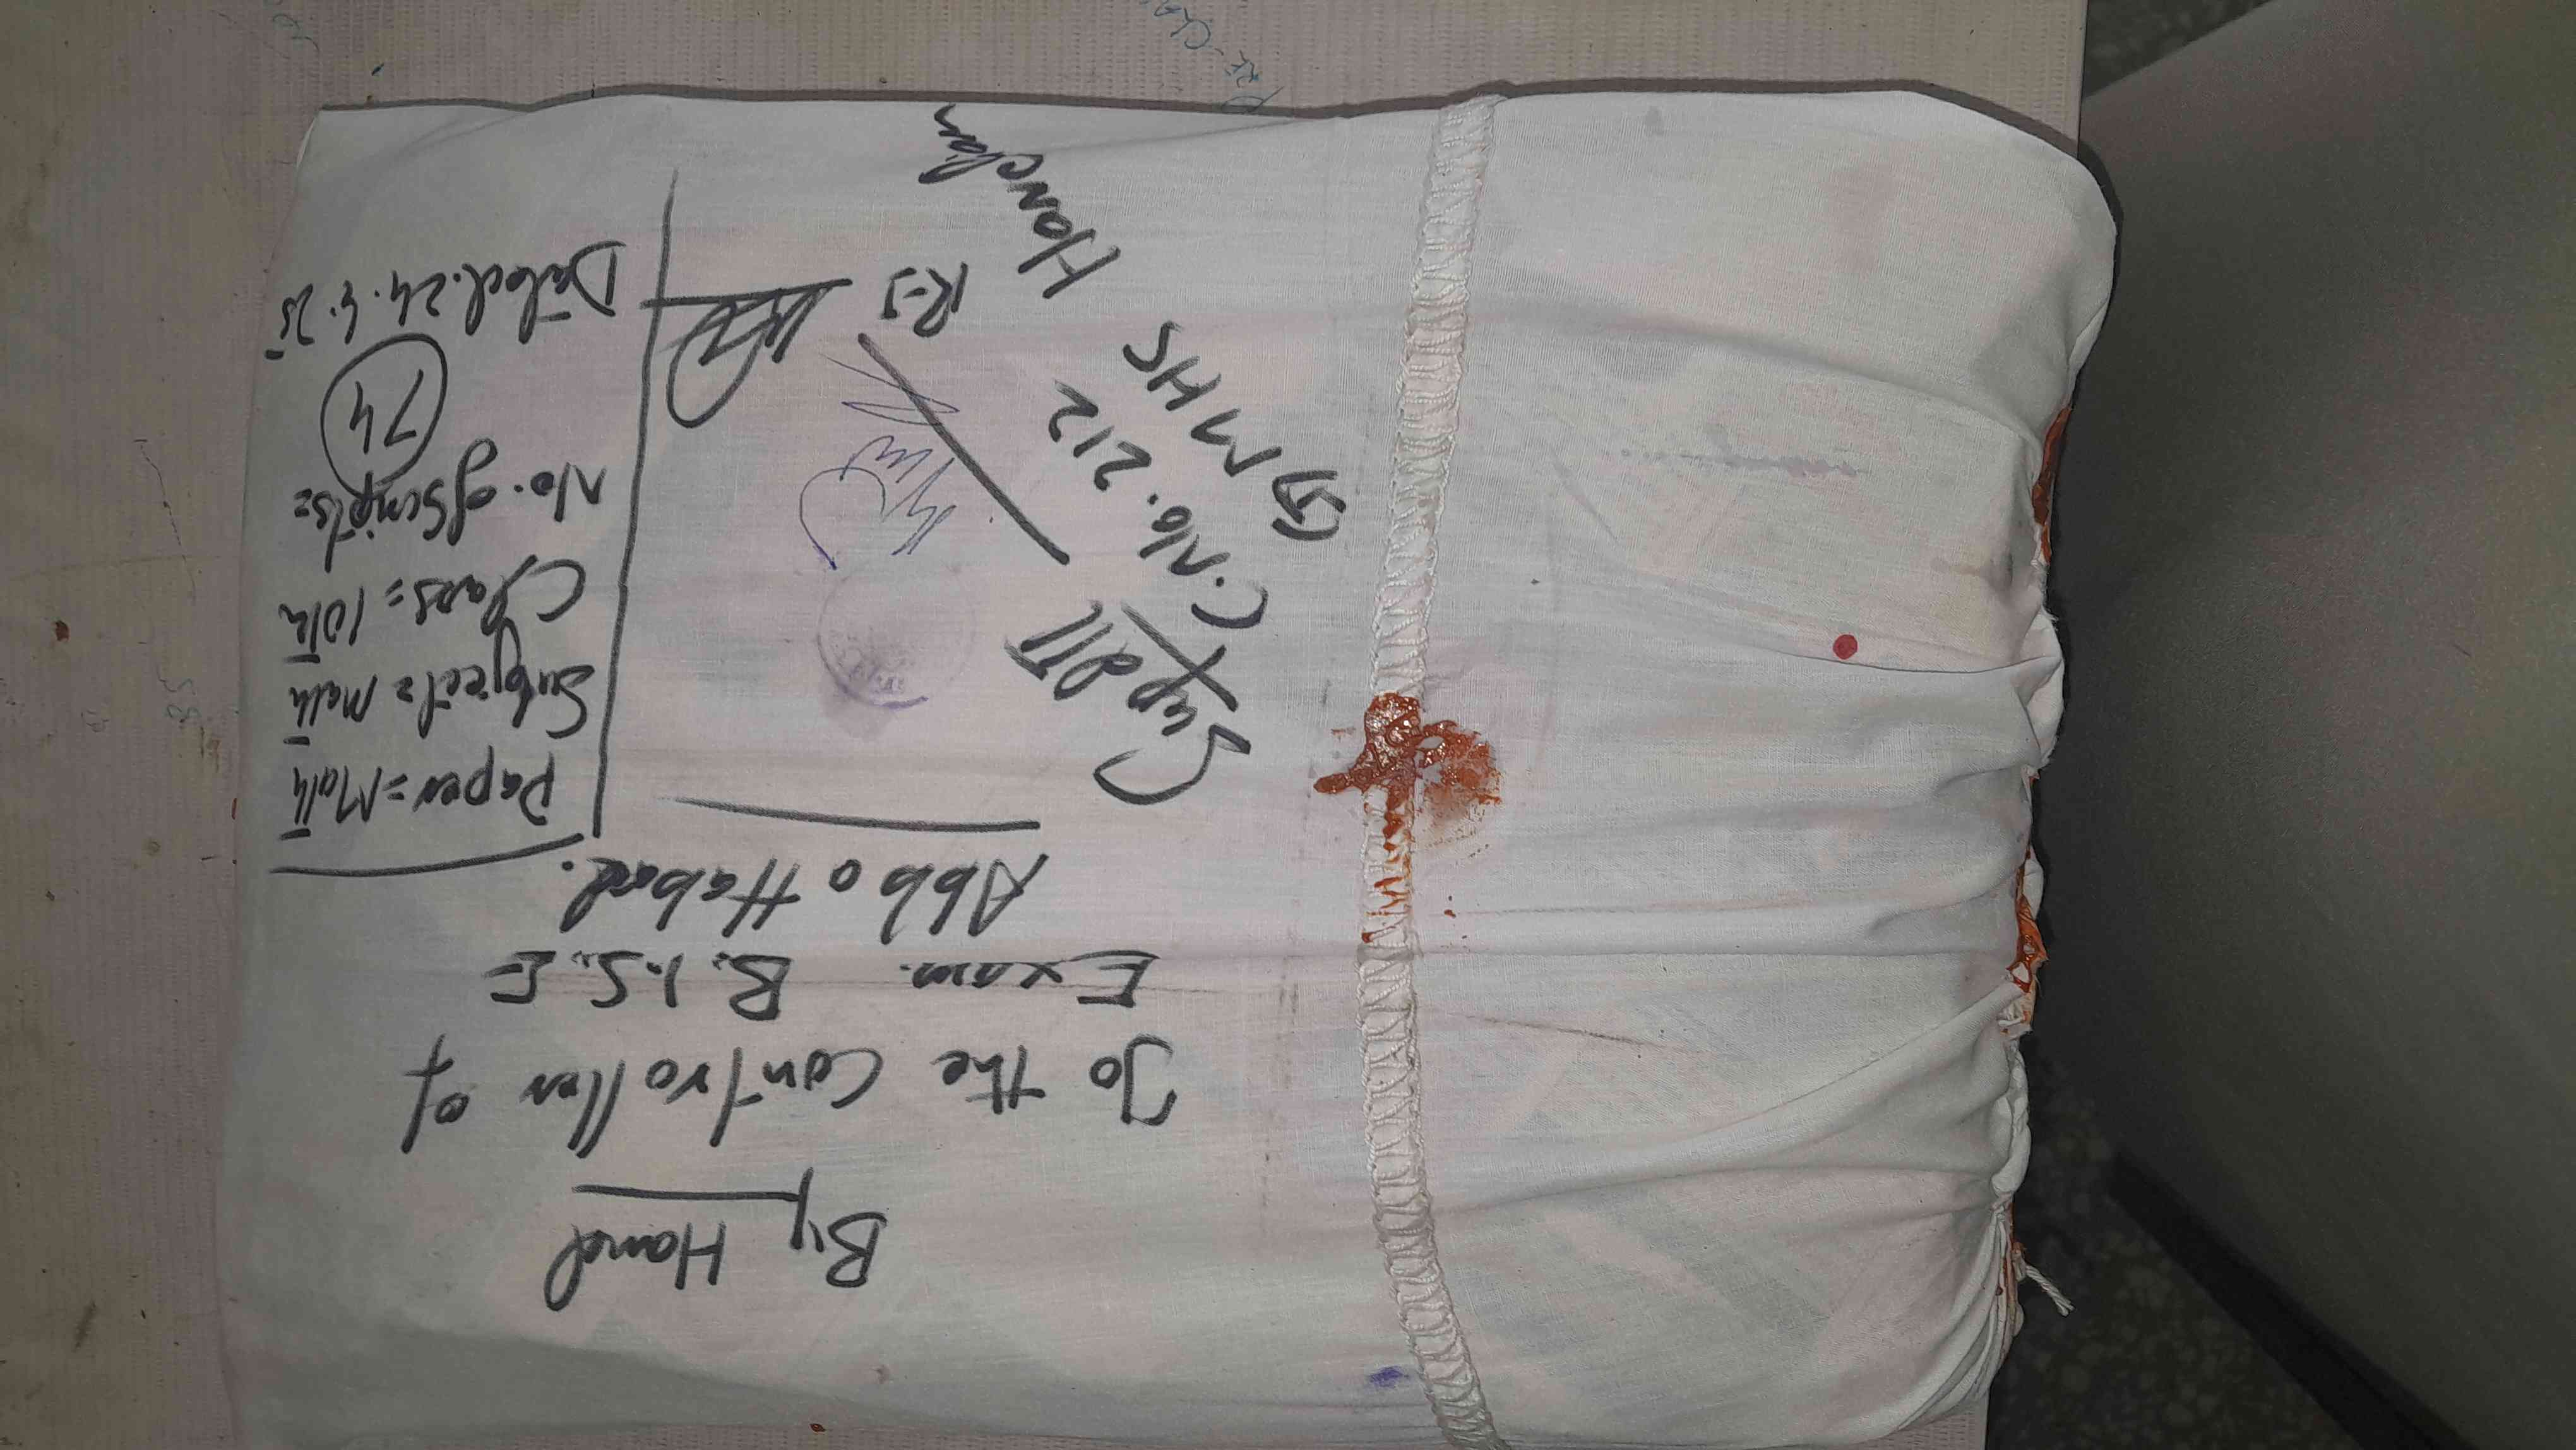 By Hand
To the Controller of
Exam. B.I.S.E
Abbottabad.
Paper = Math
Subject = Math
Class = 10th
No. of Scripts =
74
Dated. 24.4.25
Supdtt
C. No. 212
GMHS
R-J